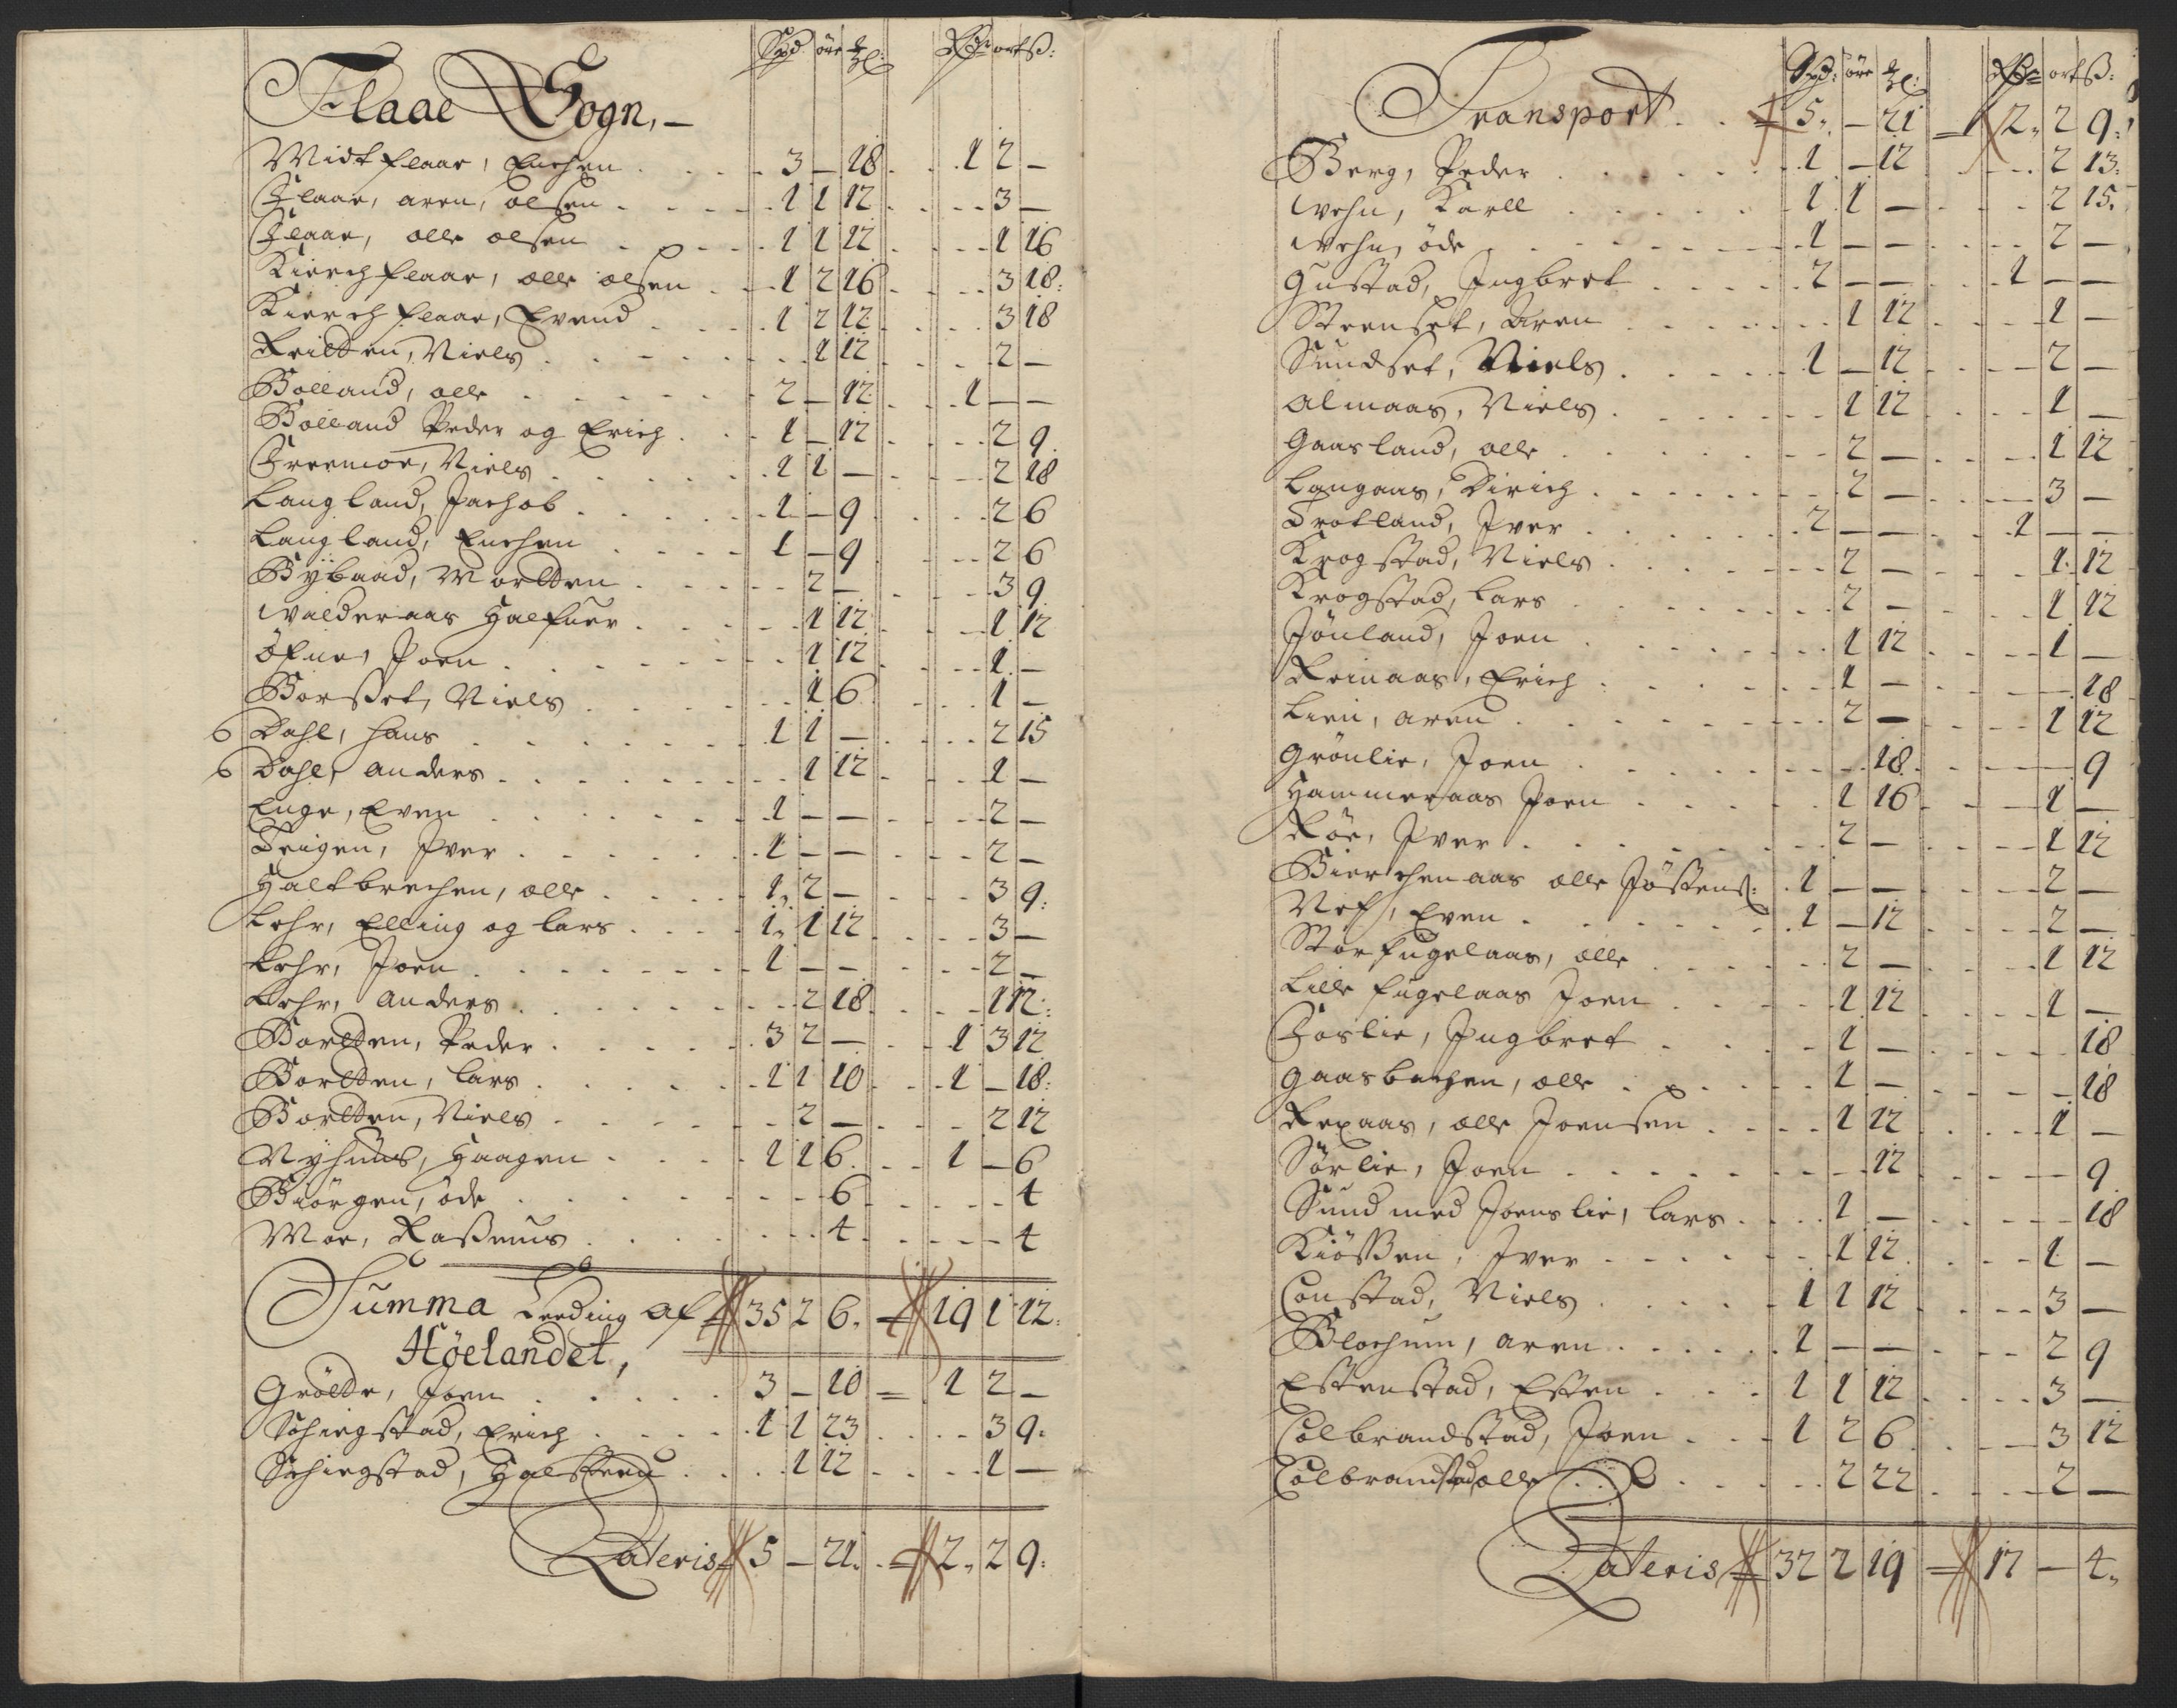 Spd øre
ort ß:
Flaae Sogn, –
Midtflaae, Enchen 3 – 18 1 2 –
Flaae, aren, olsen 1 1 12 3 –
Flaae, olle olsen 1 1 12 1 16
Kierchflaae, olle olsen 1 2 16 3 18:
Kierchflaae, Evend 1 2 12 3 18
Reitten, Niels 1 12 2 –
Bolland, olle 2 – 12 1 – –
Bolland Peder og Erich 1 – 12 2 9
Freemoe, Niels 1 1 – 2 18
Langland, Jachob 1 – 9 2 6
Langland, Enchen 1 – 9 2 6
Bÿbaad, Mortten 2 – 3 9
walderaas Halfuer 1 12 1 12
Joen 1 12 1 –
Borsset, Niels 1 6 1 –
6 Dahl, Hans 1 1 – 2 15
6 Dahl, Anders 1 12 1 –
Enge, Even 1 – – 2 –
Teigen, Iver 1 – – 2 –
Haltbrechen, olle 1 2 – 3 9:
Lehr, Elling og lars 1 1 12 3 –
Lehr, Joen 1 – – 2 –
Lehr, Anders 2 18 1 12:
Bortten, Peder 3 2 – 1 3 12
Bortten, Lars 1 1 10 1 – 18:
Bortten, Niels 2 – 2 12
Nÿhuus, Haagen 1 1 6 1 – 6
Biörgen, öde 6 4
Moe, Rassmus 4 4
Summa Leeding af 35 2 6 19 1 12:
Høelandet,
Grötte, Joen 3 – 10 1 2 –
Schiegstad, Erich 1 1 23 3 9:
Schiegstad, Halsteen 1 12 1 –
Lateris 5 – 21 2 2 9:
Spd: øre
ort ß:
Transport 5 – 21 2 2 9:
Berg, Peder 1 – 12 2 13:
wehn, Karll 1 1 – 2 15.
wehn, öde 1 – – 2 –
Gustad, Ingbret 2 – – 1 – –
Steenset, Aren 1 12 1 –
Sundset, Niels 1 – 12 2 –
Almaas, Niels 1 12 1 –
Gaasland, olle 2 – 1 12
Langaas, Dirich 2 – 3 –
Trotland, Iver 2 – – 1 – –
Krogstad, Niels 2 – 1 12
Krogstad, Lars 2 – 1 12
Jönland, Joen 1 12 1 –
Reinaas, Erich 1 – 18
Lien, aren 2 – 1 12
Grönlie, Joen 18 9
Hammeraas Joen 1 16 1 –
Röe, Iver 2 – 1 12
Bierchenaas olle Jöstens: 1 – – 2 –
Even 1 – 12 2 –
Storfugelaas, olle 2 – 1 12
Lille fugelaas Joen 1 12 1 –
Foslie, Ingbret 1 – 18
Gaasbachen, olle 1 – 18
Rexaas, olle Joensen 1 12 1 –
Sörlie, Joen 12 9
Sund med Joenslie, Lars 1 – 18
Kiössen, Iver 1 12 1 –
Constad, Niels 1 1 12 3 –
Blochum, aren 1 – – 2 9
Estenstad, Esten 1 1 12 3 –
Colbrandstad, Joen 1 2 6 3 12
Colbrandstad olle 2 22 2 –
Lateris 32 2 19 17 – 4